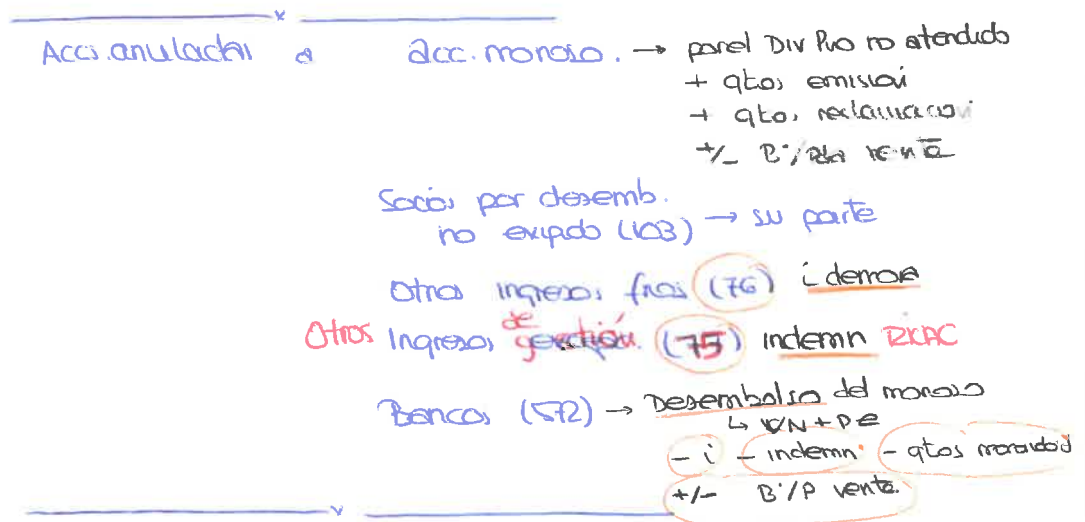 x
Acci. anuladas a acc. moroso. → parel Div Pvo no atendido
+ gtos emisión
+ gtos reclamación
+/- Bº/Pda venta
Socios por desemb.
no exigido (103) → su parte
Otros ingresos fros (76) i demora
Otros Ingresos de gestión. (75) indemn RICAC
Bancos (572) → Desembolso del moroso
↳ VN + PE
- i - indemn - gtos morosidad
+/- Bº/P venta.